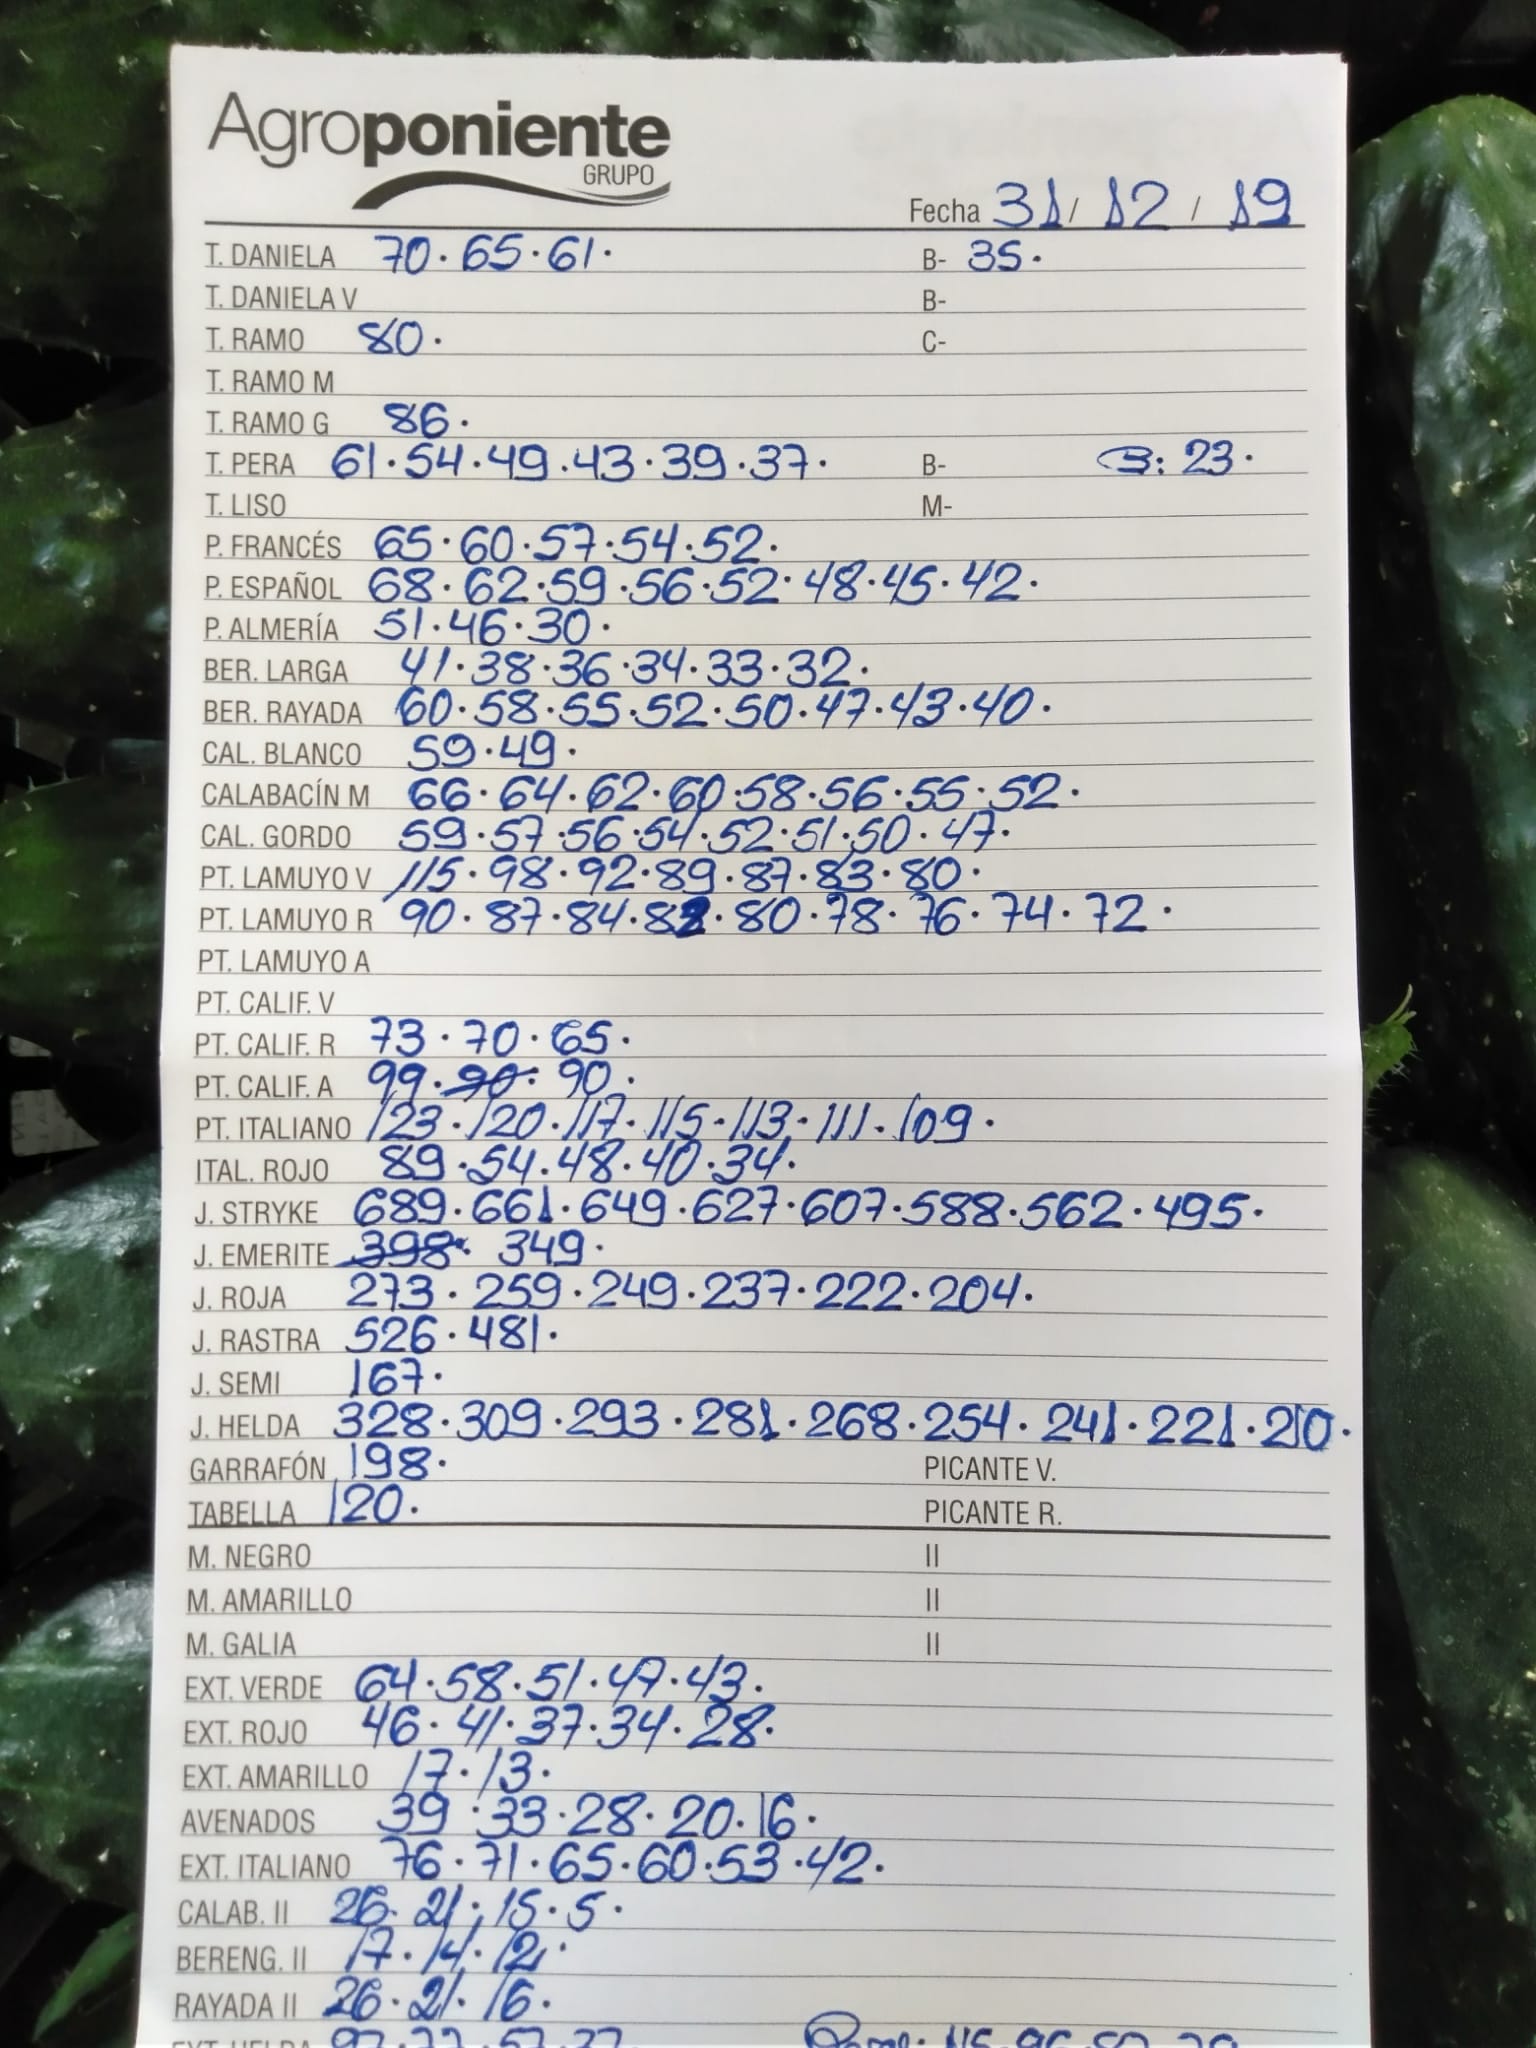 Agroponiente
GRUPO
Fecha 31 / 12 / 19
T. DANIELA 70 · 65 · 61 · B- 35 ·
T. DANIELA V B-
T. RAMO 80 · C-
T. RAMO M
T. RAMO G 86 ·
T. PERA 61 · 54 · 49 · 43 · 39 · 37 · B- B: 23 ·
T. LISO M-
P. FRANCÉS 65 · 60 · 57 · 54 · 52 ·
P. ESPAÑOL 68 · 62 · 59 · 56 · 52 · 48 · 45 · 42 ·
P. ALMERÍA 51 · 46 · 30 ·
BER. LARGA 41 · 38 · 36 · 34 · 33 · 32 ·
BER. RAYADA 60 · 58 · 55 · 52 · 50 · 47 · 43 · 40 ·
CAL. BLANCO 59 · 49 ·
CALABACÍN M 66 · 64 · 62 · 60 · 58 · 56 · 55 · 52 ·
CAL. GORDO 59 · 57 · 56 · 54 · 52 · 51 · 50 · 47 ·
PT. LAMUYO V 115 · 98 · 92 · 89 · 87 · 83 · 80 ·
PT. LAMUYO R 90 · 87 · 84 · 82 · 80 · 78 · 76 · 74 · 72 ·
PT. LAMUYO A
PT. CALIF. V
PT. CALIF. R 73 · 70 · 65 ·
PT. CALIF. A 99 · 90 · 90 ·
PT. ITALIANO 123 · 120 · 117 · 115 · 113 · 111 · 109 ·
ITAL. ROJO 89 · 54 · 48 · 40 · 34 ·
J. STRYKE 689 · 661 · 649 · 627 · 607 · 588 · 562 · 495 ·
J. EMERITE 398 · 349 ·
J. ROJA 273 · 259 · 249 · 237 · 222 · 204 ·
J. RASTRA 526 · 481 ·
J. SEMI 167 ·
J. HELDA 328 · 309 · 293 · 281 · 268 · 254 · 241 · 221 · 210 ·
GARRAFÓN 198 · PICANTE V.
TABELLA 120 · PICANTE R.
M. NEGRO II
M. AMARILLO II
M. GALIA II
EXT. VERDE 64 · 58 · 51 · 47 · 43 ·
EXT. ROJO 46 · 41 · 37 · 34 · 28 ·
EXT. AMARILLO 17 · 13 ·
AVENADOS 39 · 33 · 28 · 20 · 16 ·
EXT. ITALIANO 76 · 71 · 65 · 60 · 53 · 42 ·
CALAB. II 26 · 21 · 15 · 5 ·
BERENG. II 17 · 14 · 12 ·
RAYADA II 26 · 21 · 16 ·
EXT. HELDA